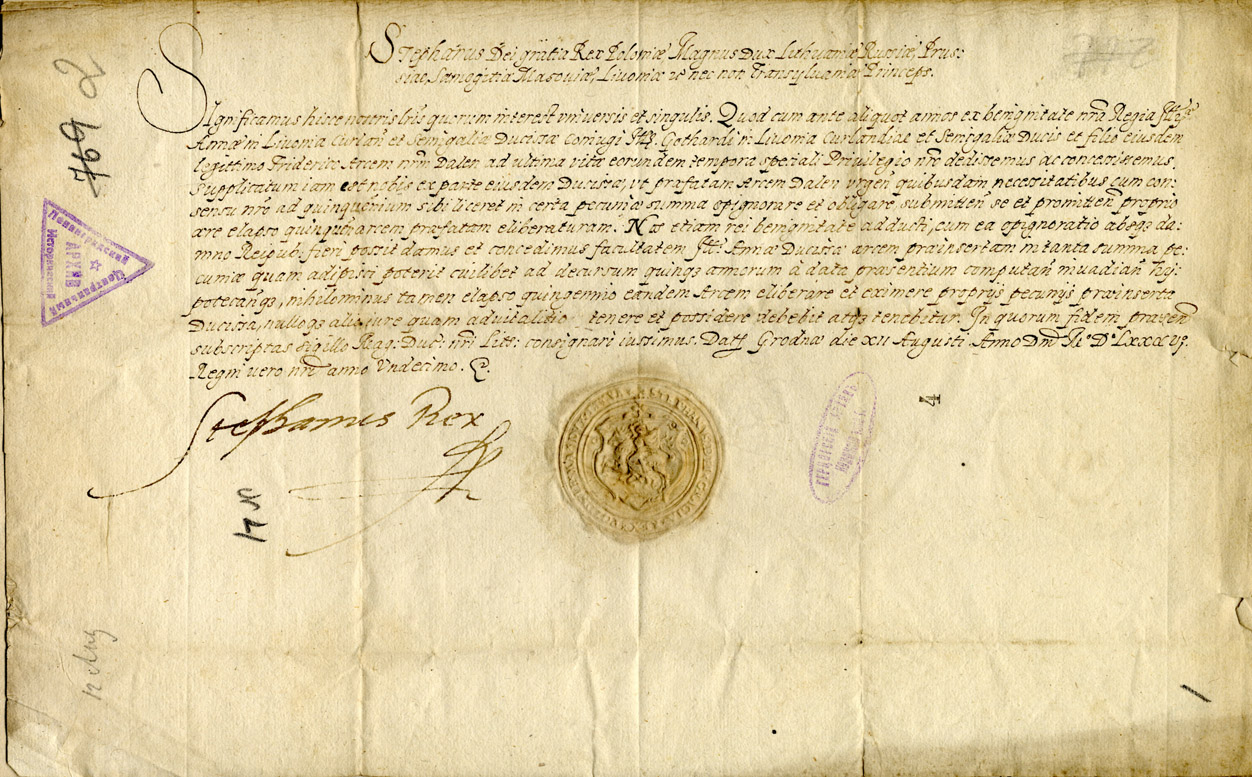 Stephanus Dei gratia Rex Poloniæ Magnus Dux Lithuaniæ Russiæ, Prus:
siæ, Samogitiæ Masoviæ, Livoniæ nec non Transylvaniæ Princeps.
Significamus hisce nostris lris quorum interest universis et singulis. Quod cum ante aliquot annos ex benignitate nra Regia
Annæ in Livonia Curlan et Semigaliæ Ducissæ coniugi Gothardi in Livonia Curlandiæ et Semigaliæ Ducis et filio eiusdem
legittimo Friderico Arcem nrm Dalen ad ultima vitæ eorundem tempora speciali Privilegio nro dedissemus ac concessissemus,
Supplicatum iam est nobis ex parte eiusdem Ducissæ, ut præfatam Arcem Dalen urgen quibusdam necessitatibus cum con:
sensu nro ad quinquenium sibi liceret in certa pecuniæ summa opignorare et obligare, submitten se et promitten proprio
ære elapso quinquenio arcem præfatam eliberaturam. Nos etiam rei benignitate adducti, cum ea opignoratio absq; da:
mno Reipub: fieri possit damus et concedimus facultatem Annæ Ducissæ arcem præinsertam in tanta summa pe:
cuniæ quam adipisci poterit cuilibet ad decursum quinq; annorum a data præsentium computan invadian hy:
potecanq;, nihilominus tamen elapso quinquennio eandem Arcem eliberare et eximere proprijs pecunijs præinserta
Ducissa, nulloq; alio iure quam advitalitio tenere et possidere debebit atq; tenebitur. In quorum fidem præsen
subscriptas sigillo Mag: Duc: nri Litt: consignari iussimus. Datt Grodnæ die XII Augusti Anno Dni M D LXXXVI.
Regni vero nri anno Undecimo.
Stephanus Rex
769
2
4
1
Центральный
Исторический
АРХИВ
Ленинградский